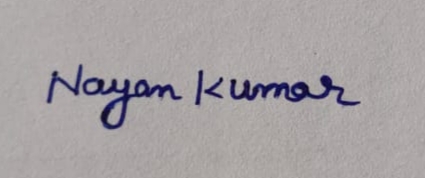 Nayan Kumar